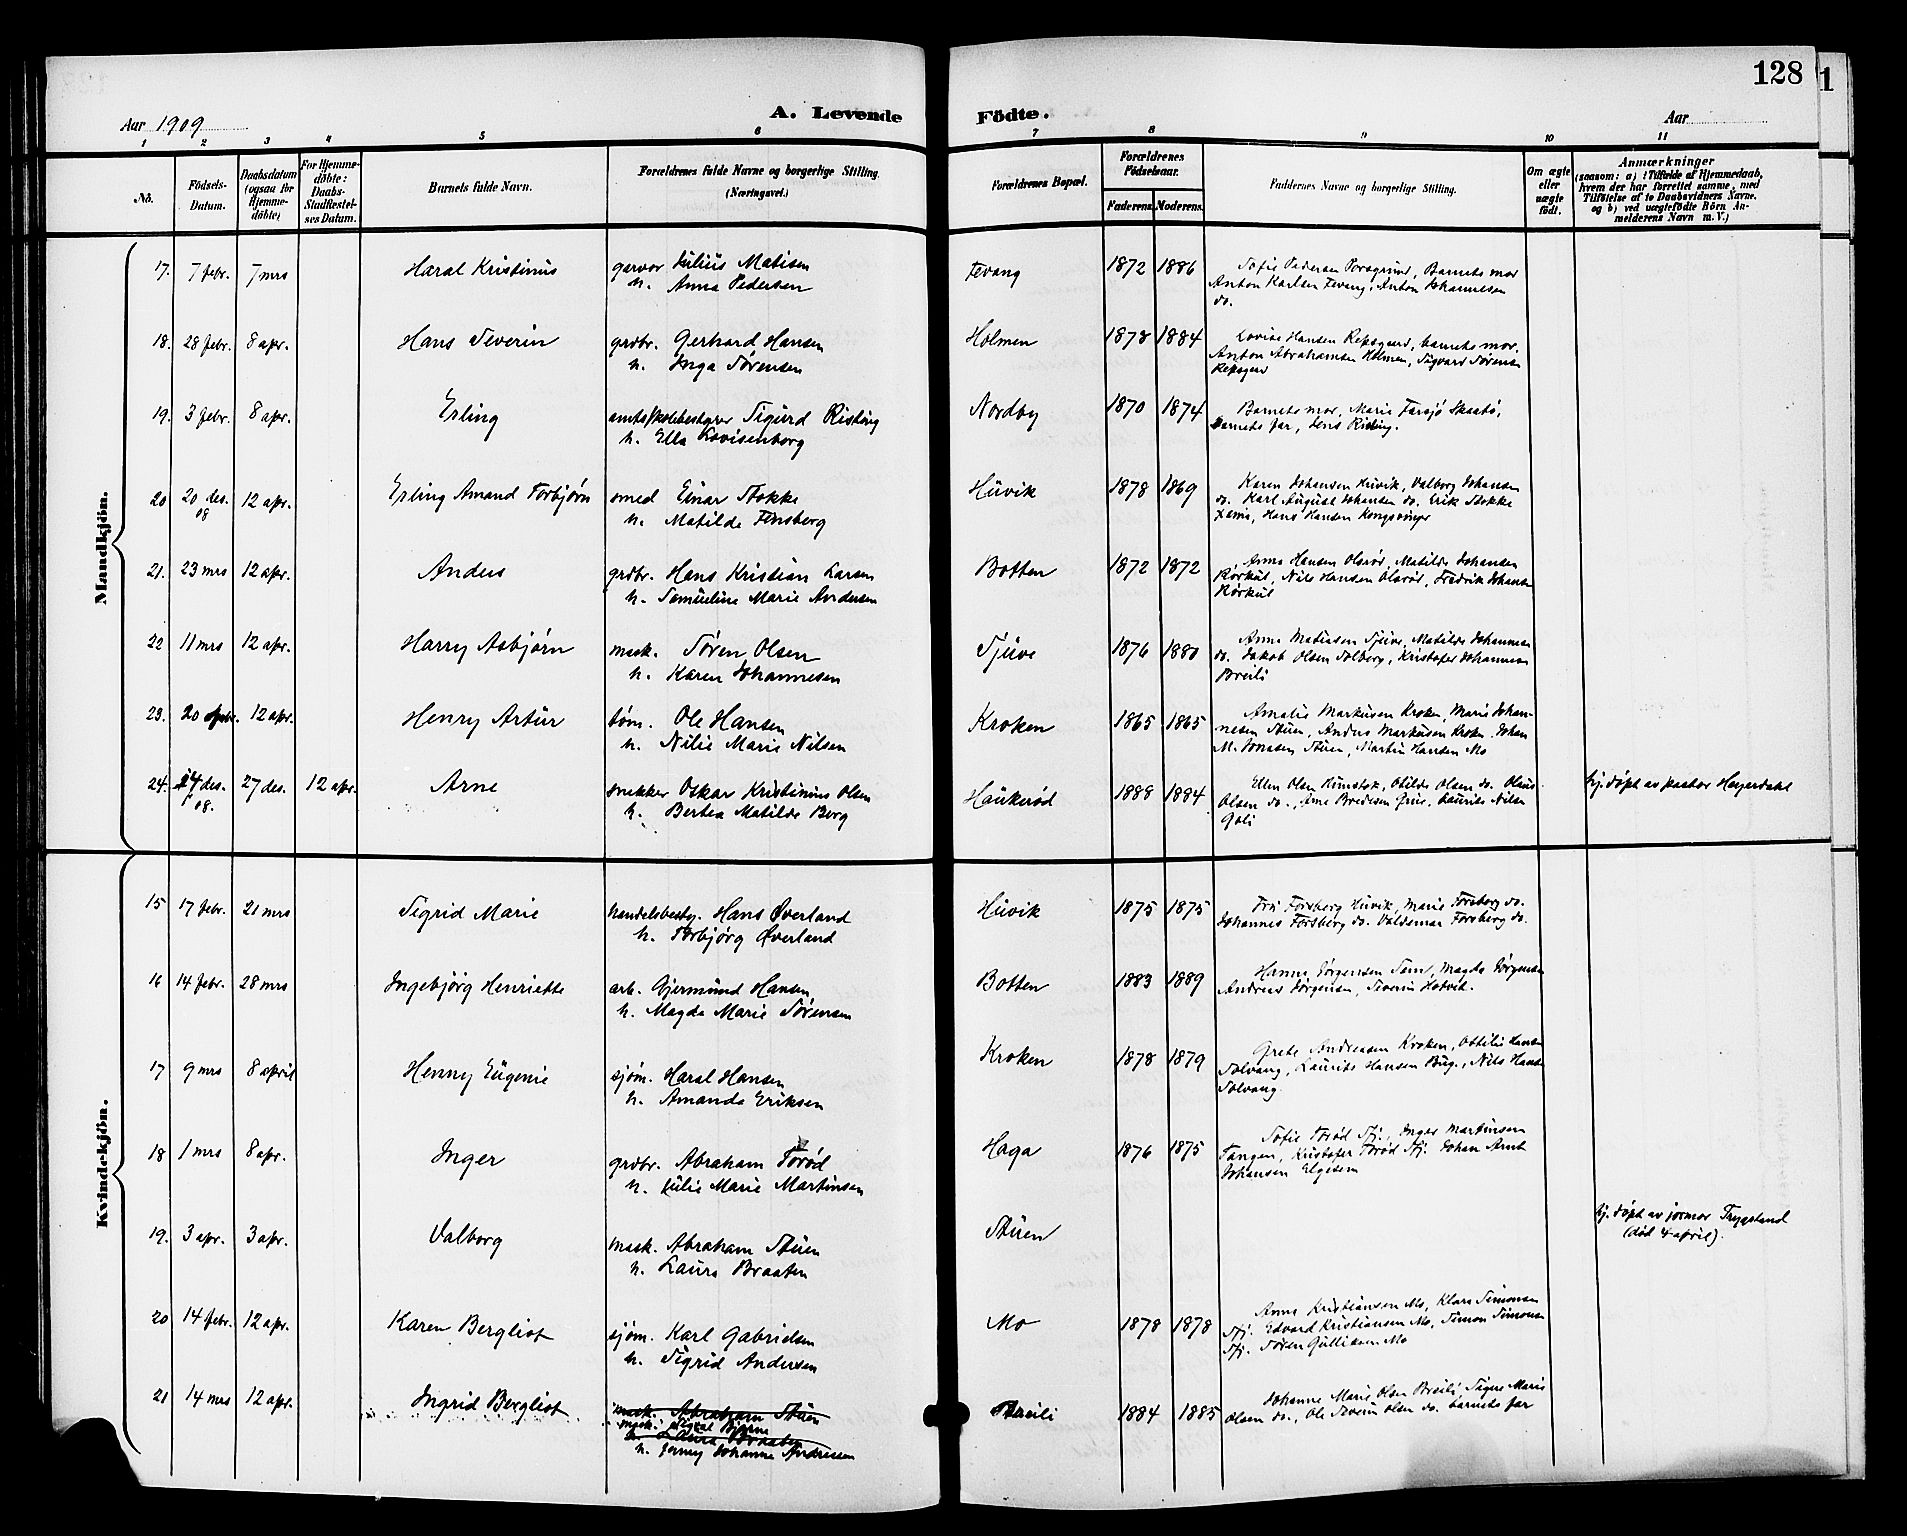 128
1
A. Levende Födte.
Aar 1909
Aar
1 2 3 4 5 6 7 8 9 10 11
No.
Födsels-Datum.
Daabsdatum (ogsaa for Hjemmedöbte)
For Hjemmedöbte: Daabs-Stadfæstelses Datum.
Barnets fulde Navn.
Forældrenes fulde Navne og borgerlige Stilling.
(Næringsvei.)
Forældrenes Bopæl.
Forældrenes Födselsaar.
Faderens. Moderens.
Faddernes Navne og borgerlige Stilling.
Om ægte eller uægte födt.
Anmærkninger
(saasom: a) i Tilfælde af Hjemmedaab, hvem der har forrettet samme, med Tilföielse af to Daabsvidners Navne. og b) ved uægtefödte Börn Anmelderens Navn m. V.)
Mandkjön.
17. 7 febr. 7 mrs Haral Kristinus garver Julius Matisen Fevang 1872 1886 Sofie Pedersen Porsgrund, Barnets mor
h. Anna Pedersen Anton Karlsen Fevang, Anton Johannesen
do.
18. 28 febr. 8 apr. Hans Severin grdbr. Gerhard Hansen Holmen 1878 1884 Lovise Hansen Repsgaard, barnets mor.
h. Inga Sørensen Anton Abrahamsen Holmen, Sigvard Sørensen
19. 3 febr. 8 apr. Erling amtsskolebestyrer Sigurd Risting Nordby 1870 1874 Barnets mor, Marie Farsjø Skaatø,
h. Ella Lovisenborg Barnets far, Jens Risting.
20 20 des. 08 12 apr. Erling Amand Torbjørn smed Einar Stokke Huvik 1878 1869 Karen Johansen Huvik, Valborg Johansen
h. Matilde Tønsberg do. Karl August Johansen do. Erik Stokke
Hans Hansen Kongsvinger
21. 23 mrs 12 apr. Anders grdbr. Hans Kristian Larsen Botten 1872 1872 Anna Hansen Olsrød, Matilde Johansen
h. Samueline Marie Andersen Rørkul, Nils Hansen Olsrød, Fredrik Johansen
Rørkul
22 11 mrs 12 apr. Harry Asbjørn mask. Søren Olsen Tjuve 1876 1880 Anna Matisen Tjuve, Matilde Johannesen
h. Karen Johannesen do. Jakob Olsen Solberg, Kristofer Johannesen
Breili
23. 20 febr. 12 apr. Henry Artur tøm. Ole Hansen Kroken 1865 1865 Amalie Markusen Kroken, Marie Johan-
h. Nilie Marie Nilsen nesen Stuen, Anders Markusen Kroken. Johan
M. Jonasen Stuen, Martin Hansen Mo
24. 14 des. 08. 27 des. 12 apr. Arne snekker Oskar Kristinus Olsen Haukerød 1888 1884 Ellen Olsen Rumstok, Otilde Olsen do. Olaus hj. døpt av pastor Heyerdahl
h. Bertea Matilde Berg Olsen do., Arne Bredesen, Laurits Nilsen
Kvindekjön.
15 17 febr. 21 mrs Sigrid Marie handelsbesty. Hans Øverland Huvik 1875 1875 Fru Forsberg Huvik, Marie Forsberg do.
h. Torbjørg Øverland Johannes Forsberg do. Valdemar Forsberg do.
16 14 febr. 28 mrs Ingebjørg Henriette arb. Gjermund Hansen Botten 1883 1889 Hanna Jørgensen Sem, Magda Jørgensen
h. Magda Marie Sørensen Andreas Jørgensen, Severin Hotvik.
17 9 mrs 8 april Henny Eugenie sjøm. Haral Hansen Kroken 1878 1879 Grete Andreasen Kroken, Ottilie Hansen
h. Amanda Eriksen Solvang, Laurits Hansen Bug., Nils Hansen
Solvang
18 1 mrs 8 apr. Inger grdbr. Abraham Torød Haga 1876 1875 Sofie Torød Stj., Inger Martinsen
h. Julie Marie Martinsen Tangen, Kristofer Torød Stj. Johan Arnt
Johansen Elgesem
19. 3 apr. 3 apr. Valborg mask. Abraham Stuen Stuen hj. døpt av jormor Trygstand
h. Laura Braaten (død 4 april).
20 14 febr. 12 apr. Karen Bergliot sjøm. Karl Gabrielsen Mo 1878 1878 Anna Kristiansen Mo, Klara Simonsen
h. Sigrid Andersen Stj. Edvard Kristiansen Mo, Simon Simonsen
Stj. Søren Gulliksen Mo
21 14 mrs 12 apr. Ingrid Bergliot mask. Abraham Stuen Breili 1884 1885 Johanne Marie Olsen Breili, Signe Marie
mask. Bjerne Olsen do., Ole Severin Olsen do. barnets far
h. Laura Braaten
h. Jenny Johanne Andresen